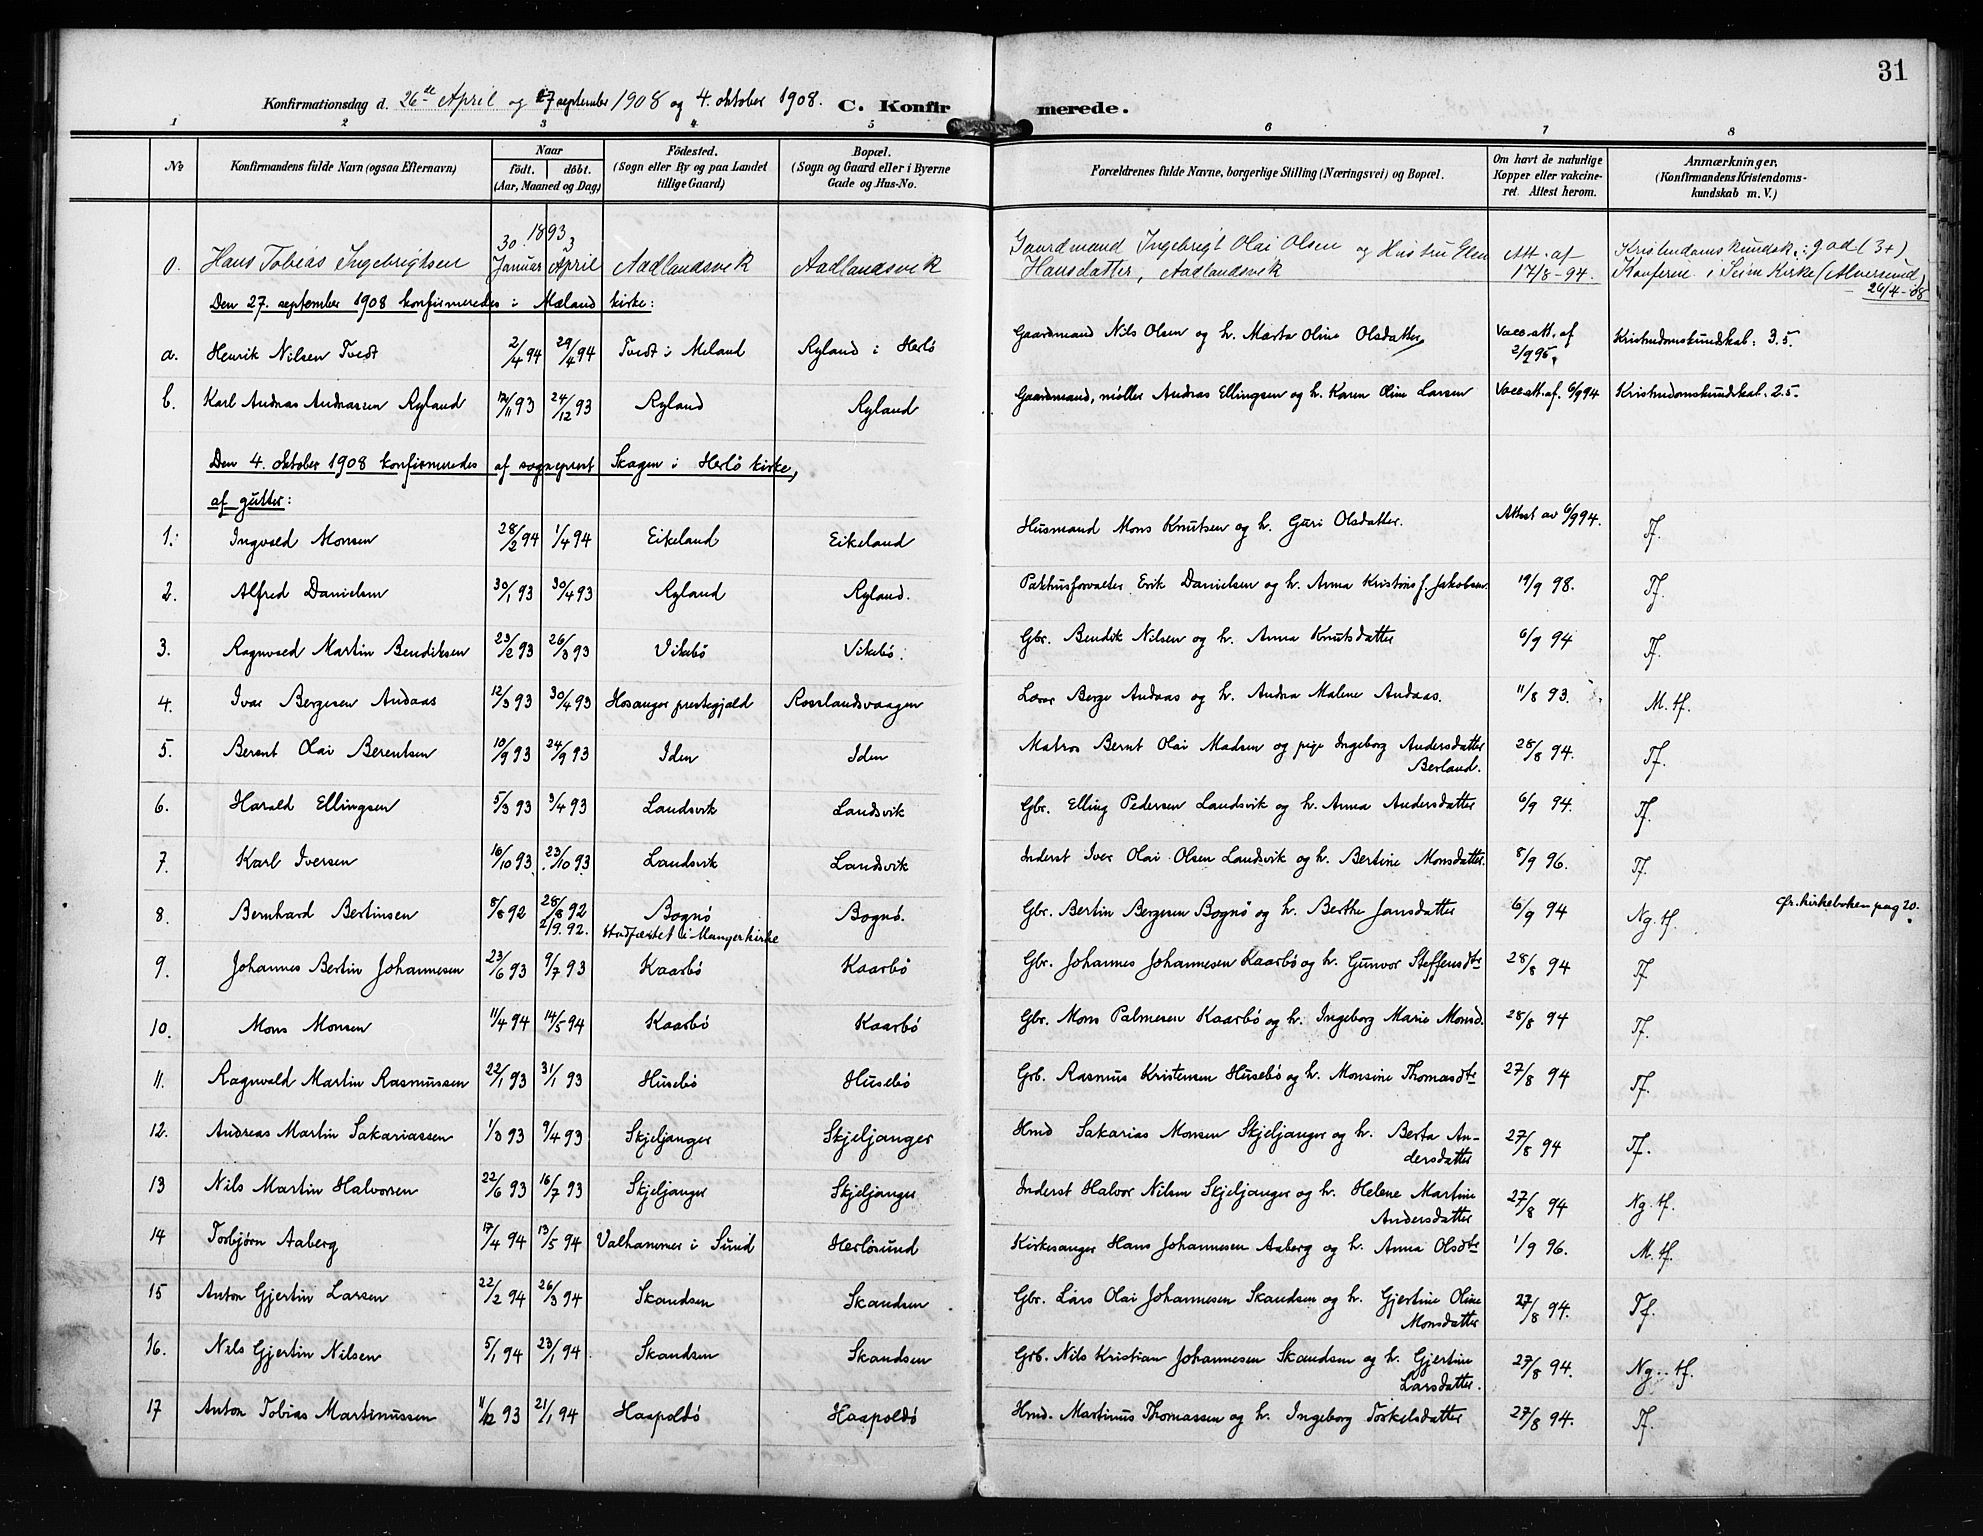 31
Konfirmationsdag d. 26de April og 27 september 1908 og 4. oktober 1908. C. Konfirmerede.
1 2 3 4 5 6 7 8
No Konfirmandens fulde Navn (ogsaa Efternavn) Naar født. døbt. (Aar, Maaned og Dag) Födested. (Sogn eller By og paa Landet tillige Gaard) Bopæl. (Sogn og Gaard eller i Byerne Gade og Hus-No. Forældrenes fulde Navne, borgerlige Stilling (Næringsvei) og Bopæl. Om havt de naturlige Kopper eller vakcineret. Attest herom. Anmærkninger, (Konfirmandens Kristendomskundskab m. V.)
0. Hans Tobias Ingebrigtsen 1893 30. Januar 3 April Aadlandsvik Aadlandsvik Gaardmand Ingebrigt Olai Olsen og Hustru Elen Hansdatter, Aadlandsvik Att. af 17/8-94. Kristendomskundsk.: god (3+) Konferm. i Seim Kirke (Alversund) 26/4-08
Den 27. september 1908 konfirmeredes i Mæland kirke:
a. Henrik Nilsen Tvedt 2/4 94 29/4 94 Tvedt i Meland Ryland i Herlö Gaardmand Nils Olsen og h. Marta Oline Olsdatter Vacc.att. af 2/9 95. Kristendomskundskab: 3.5.
b. Karl Andreas Andreassen Ryland 12/11 93 24/12 93 Ryland Ryland Gaardmand, møller Andreas Ellingsen og h. Karen Oline Larsen Vacc.att. af. 6/9 94 Kristendomskundskab: 2.5.
Den 4. oktober 1908 konfirmeredes af sogneprest Skagen i Herlö kirke,
af gutter:
1. Ingvald Monsen 28/2 94 1/4 94 Eikeland Eikeland Husmand Mons Knutsen og h. Guri Olsdatter. Attest av 6/9 94. Tf.
2. Alfred Danielsen 30/1 93 30/4 93 Ryland Ryland. Pakhusforvalter Erik Danielsen og h. Anna Kristine f. Jakobsen. 19/9 98. Tf.
3. Ragnvald Martin Bendiksen 23/2 93 26/3 93 Vikebö Vikebö. Gbr. Bendik Nilsen og h. Anna Knutsdatter 6/9 94 Tf.
4. Ivar Bergesen Andaas 12/3 93 30/4 93 Hosanger prestegjald Rosslandsvaagen Lærer Berge Andaas og h. Andrea Malene Andaas. 11/8 93. M. tf.
5. Berent Olai Berentsen 10/9 93 24/9 93 Iden Iden Matros Bernt Olai Madsen og pige Ingeborg Andersdatter Berland. 28/8 94. Tf.
6. Harald Ellingsen 5/3 93 3/4 93 Landsvik Landsvik Gbr. Elling Pedersen Landsvik og h. Anna Andersdatter 6/9 94. Tf.
7. Karl Iversen 16/10 93 23/10 93 Landsvik Landsvik Inderst Iver Olai Olsen Landsvik og h. Bertine Monsdatter. 8/9 96. Tf.
8. Bernhard Bertinsen 8/8 92 28/8 92 2/9.92. Bognö Stadfæstet i Manger kirke Bognö. Gbr. Bertin Bergesen Bognö og h. Berthe Jansdatter 6/9 94 Ng. tf. Cfr. kirkeboken pag 20.
9. Johannes Bertin Johannesen 23/6 93 9/7 93 Kaarbö Kaarbö Gbr. Johannes Johannesen Kaarbö og h. Gunvor Steffensdtr 28/8 94 Tf
10. Mons Monsen 11/4 94 14/5 94 Kaarbö Kaarbö Gbr. Mons Palmesen Kaarbö og h. Ingeborg Marie Monsd. 28/8 94 Tf.
11. Ragnvald Martin Rasmussen 22/1 93 31/1 93 Husebö Husebö Grb. Rasmus Kristensen Husebö og h. Monsine Thomasdtr 27/8 94 Tf.
12. Andreas Martin Sakariassen 1/3 93 9/4 93 Skjeljanger Skjeljanger Hmd Sakarias Monsen Skjeljanger og h. Berta Andersdatter 27/8 94 Tf.
13 Nils Martin Halvorsen 22/6 93 16/7 93 Skjeljanger Skjeljanger Inderst Halvor Nilsen Skjeljanger og h. Helene Martine Andersdatter 27/8 94 Ng. tf.
14 Torbjørn Aaberg 17/4 94 13/5 94 Valhammer i Sund Herlösund Kirkesanger Hans Johannesen Aaberg og h. Anna Olsdtr 1/9 96. M. tf.
15 Anton Gjertin Larsen 22/2 94 26/3 94 Skandsen Skandsen Gbr. Lars Olai Johannesen Skandsen og h. Gjertine Oline Monsdatter 27/8 94. Tf.
16. Nils Gjertin Nilsen 5/1 94 23/1 94 Skandsen Skandsen Grb. Nils Kristian Johannesen Skandsen og h. Gjertine Larsdatter. 27/8 94. Ng. tf.
17 Anton Tobias Martinussen 11/12 93 21/1 94 Haapoldö Haapoldö Hmd. Martinus Thomassen og h. Ingeborg Torkelsdatter 27/8 94. Tf.